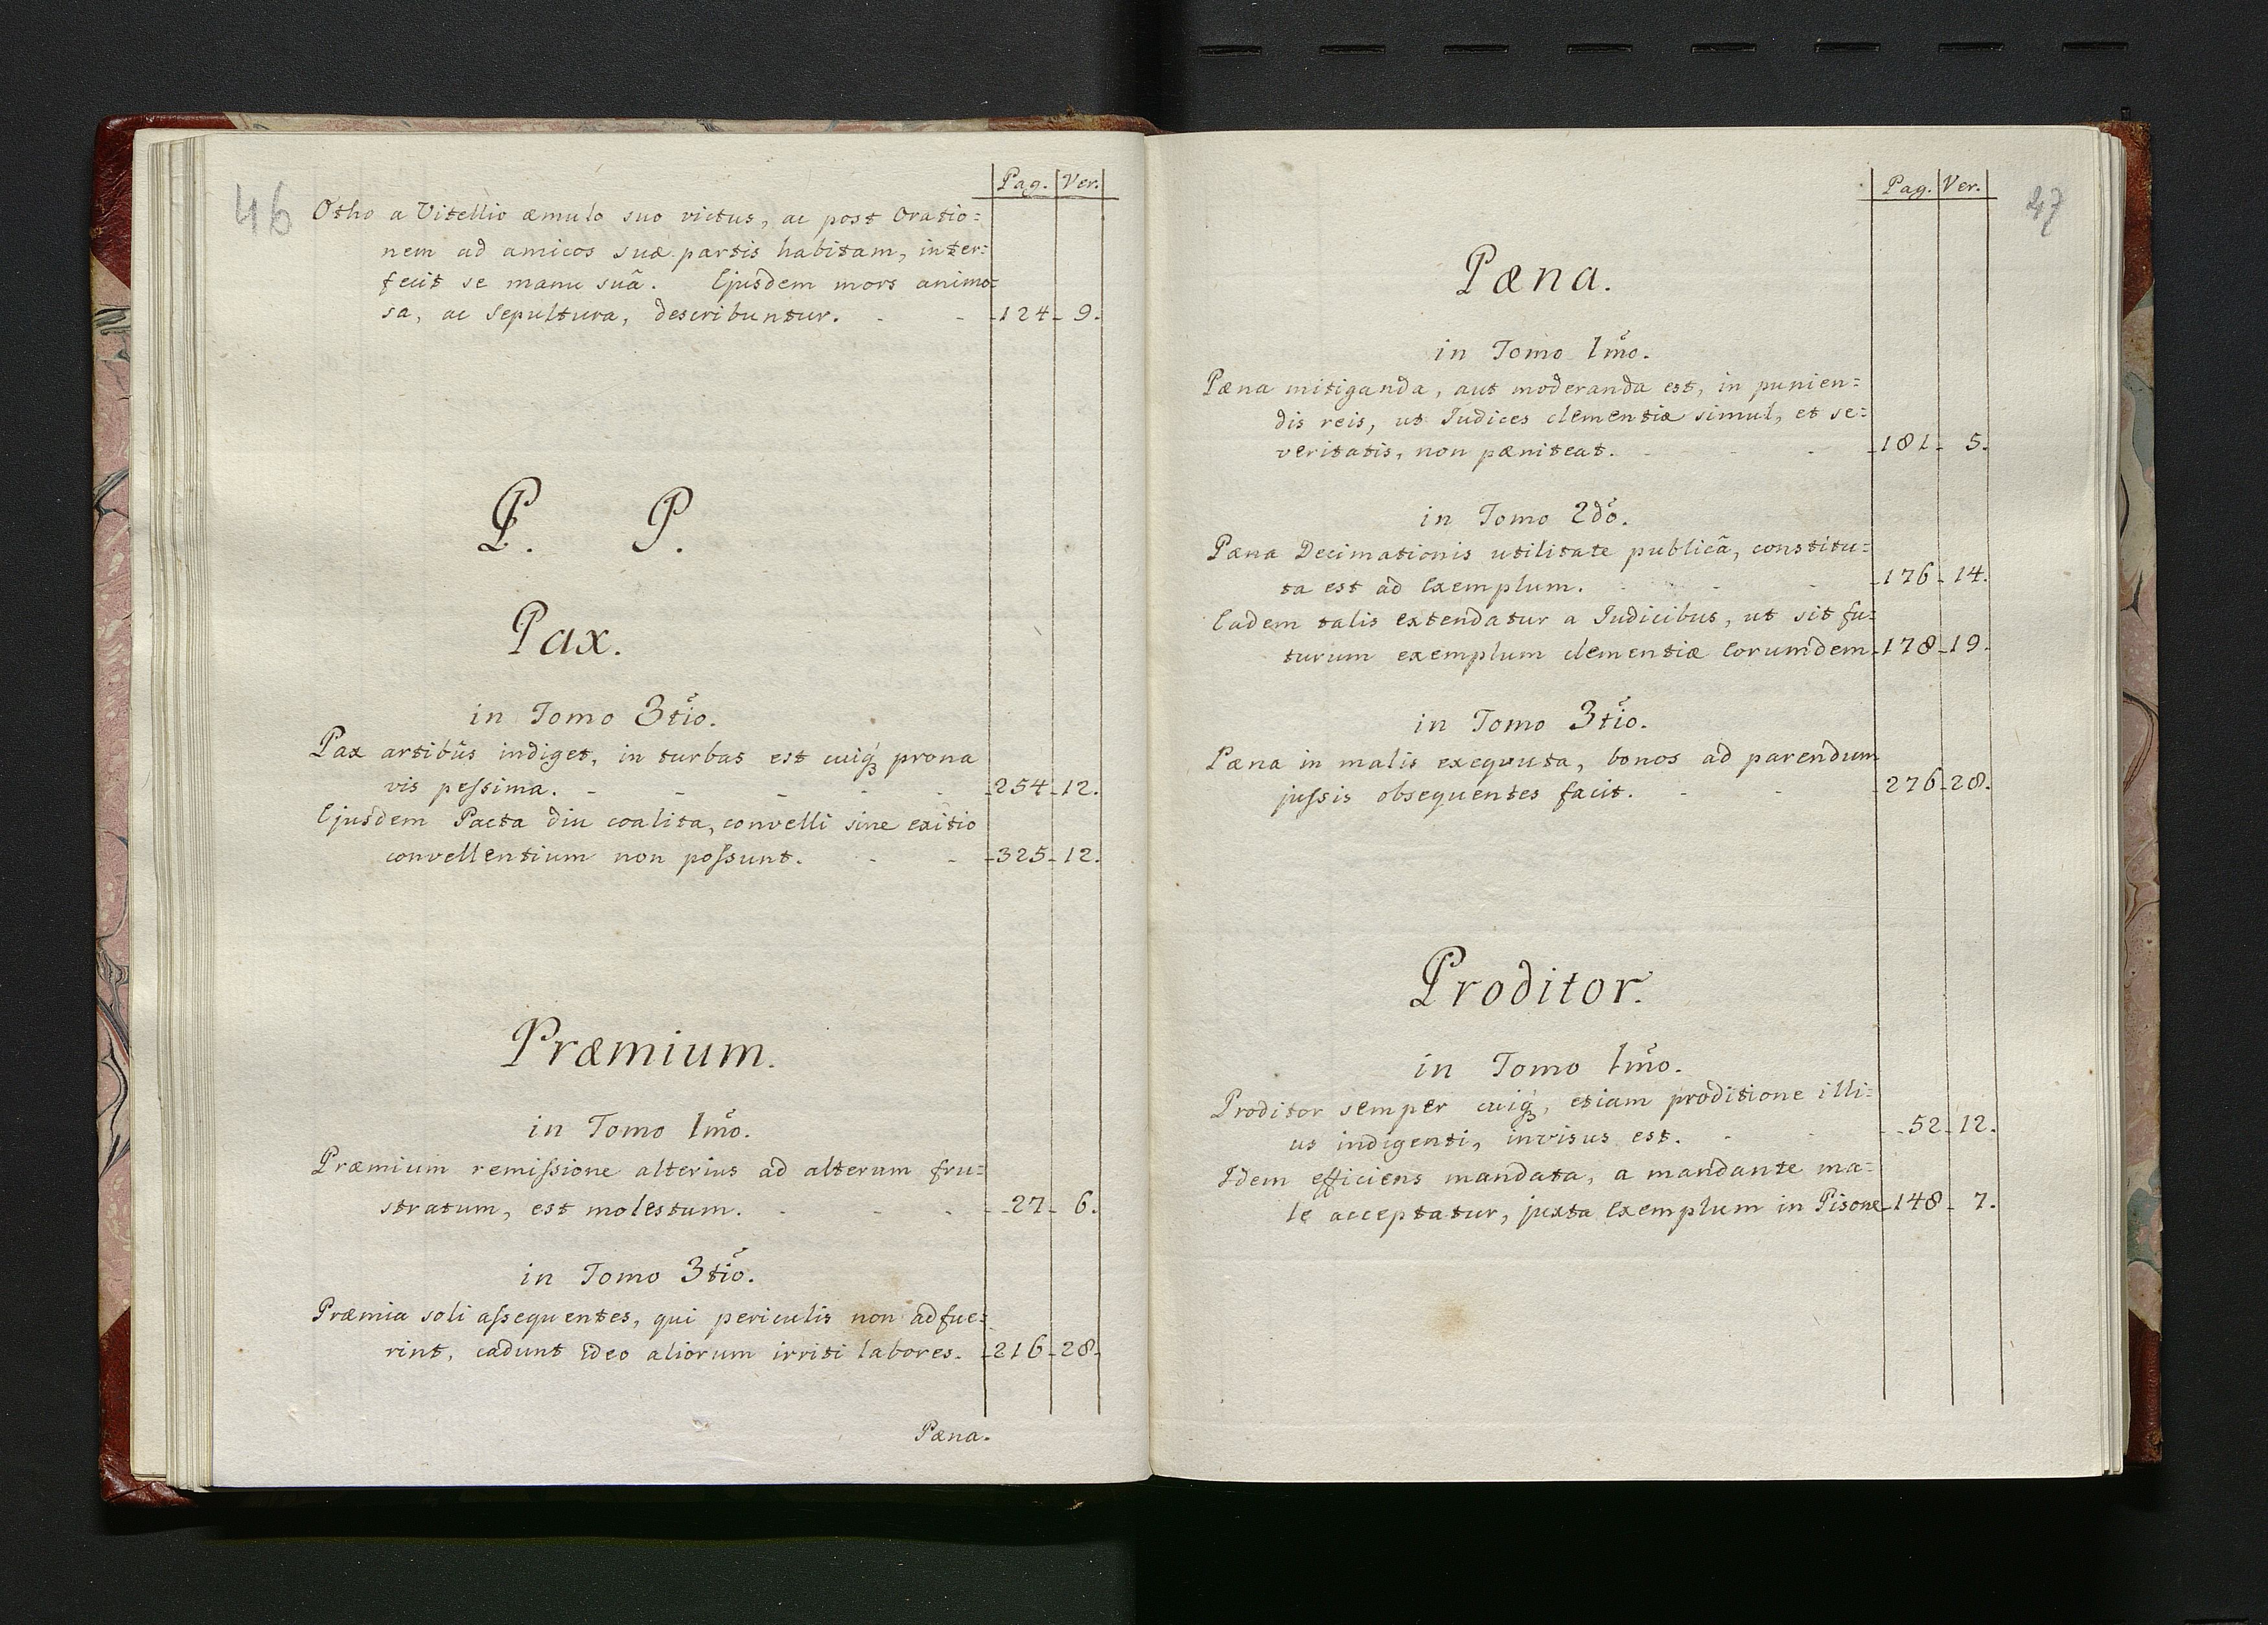 46
Pag. Ver.
Otho a Vitellio æmulo suo victus, ac post Oratio=
nem ad amicos suæ partis habitam, inter=
fecit se manu suâ. Ejusdem mors animo=
sa, ac Sepultura, describuntur. - - 124 - 9.
P. P.
Pax.
in Tomo 3tio.
Pax artibûs indiget, in turbas est cuiq́ʒ prona
vis peſsima. - - - - - 254 - 12.
Ejusdem Pacta diu coalita, convelli sine exitio
convellentium non poſsunt. - - 325 - 12.
Præmium.
in Tomo 1mo.
Præmium remiſsione alterius ad alterum fru=
stratum, est molestum. - - - 27 - 6.
in Tomo 3tio.
Præmia soli aſsequentes, qui periculis non adfue=
rint, cadunt ideo aliorum irriti labores. - 216 - 28.
Pæna.
Pag. Ver.
47
Pæna.
in Tomo 1mo.
Pæna mitiganda, aut moderanda est, in punien=
dis reis, ut Judices clementiæ simul, et se=
veritatis, non pæniteat. - - 181 - 5.
in Tomo 2do.
Pæna Decimationis utilitate publicâ, constitu=
ta est ad Exemplum. - - - 176 - 14.
Eadem talis extendatur a Judicibus, ut sit fu=
turum exemplum clementiæ Eorumdem - 178 - 19.
in Tomo 3tio.
Pæna in malis exequuta, bonos ad parendum
juſsis obsequentes facit. - - 276 - 28.
Proditor.
in Tomo 1mo.
Proditor semper cuiq́ʒ, etiam proditione illi=
us indigenti, invisus est. - - 52 - 12.
Idem efficiens mandata, a mandante ma=
le acceptatur, juxta Exemplum in Pisone - 148 - 7.